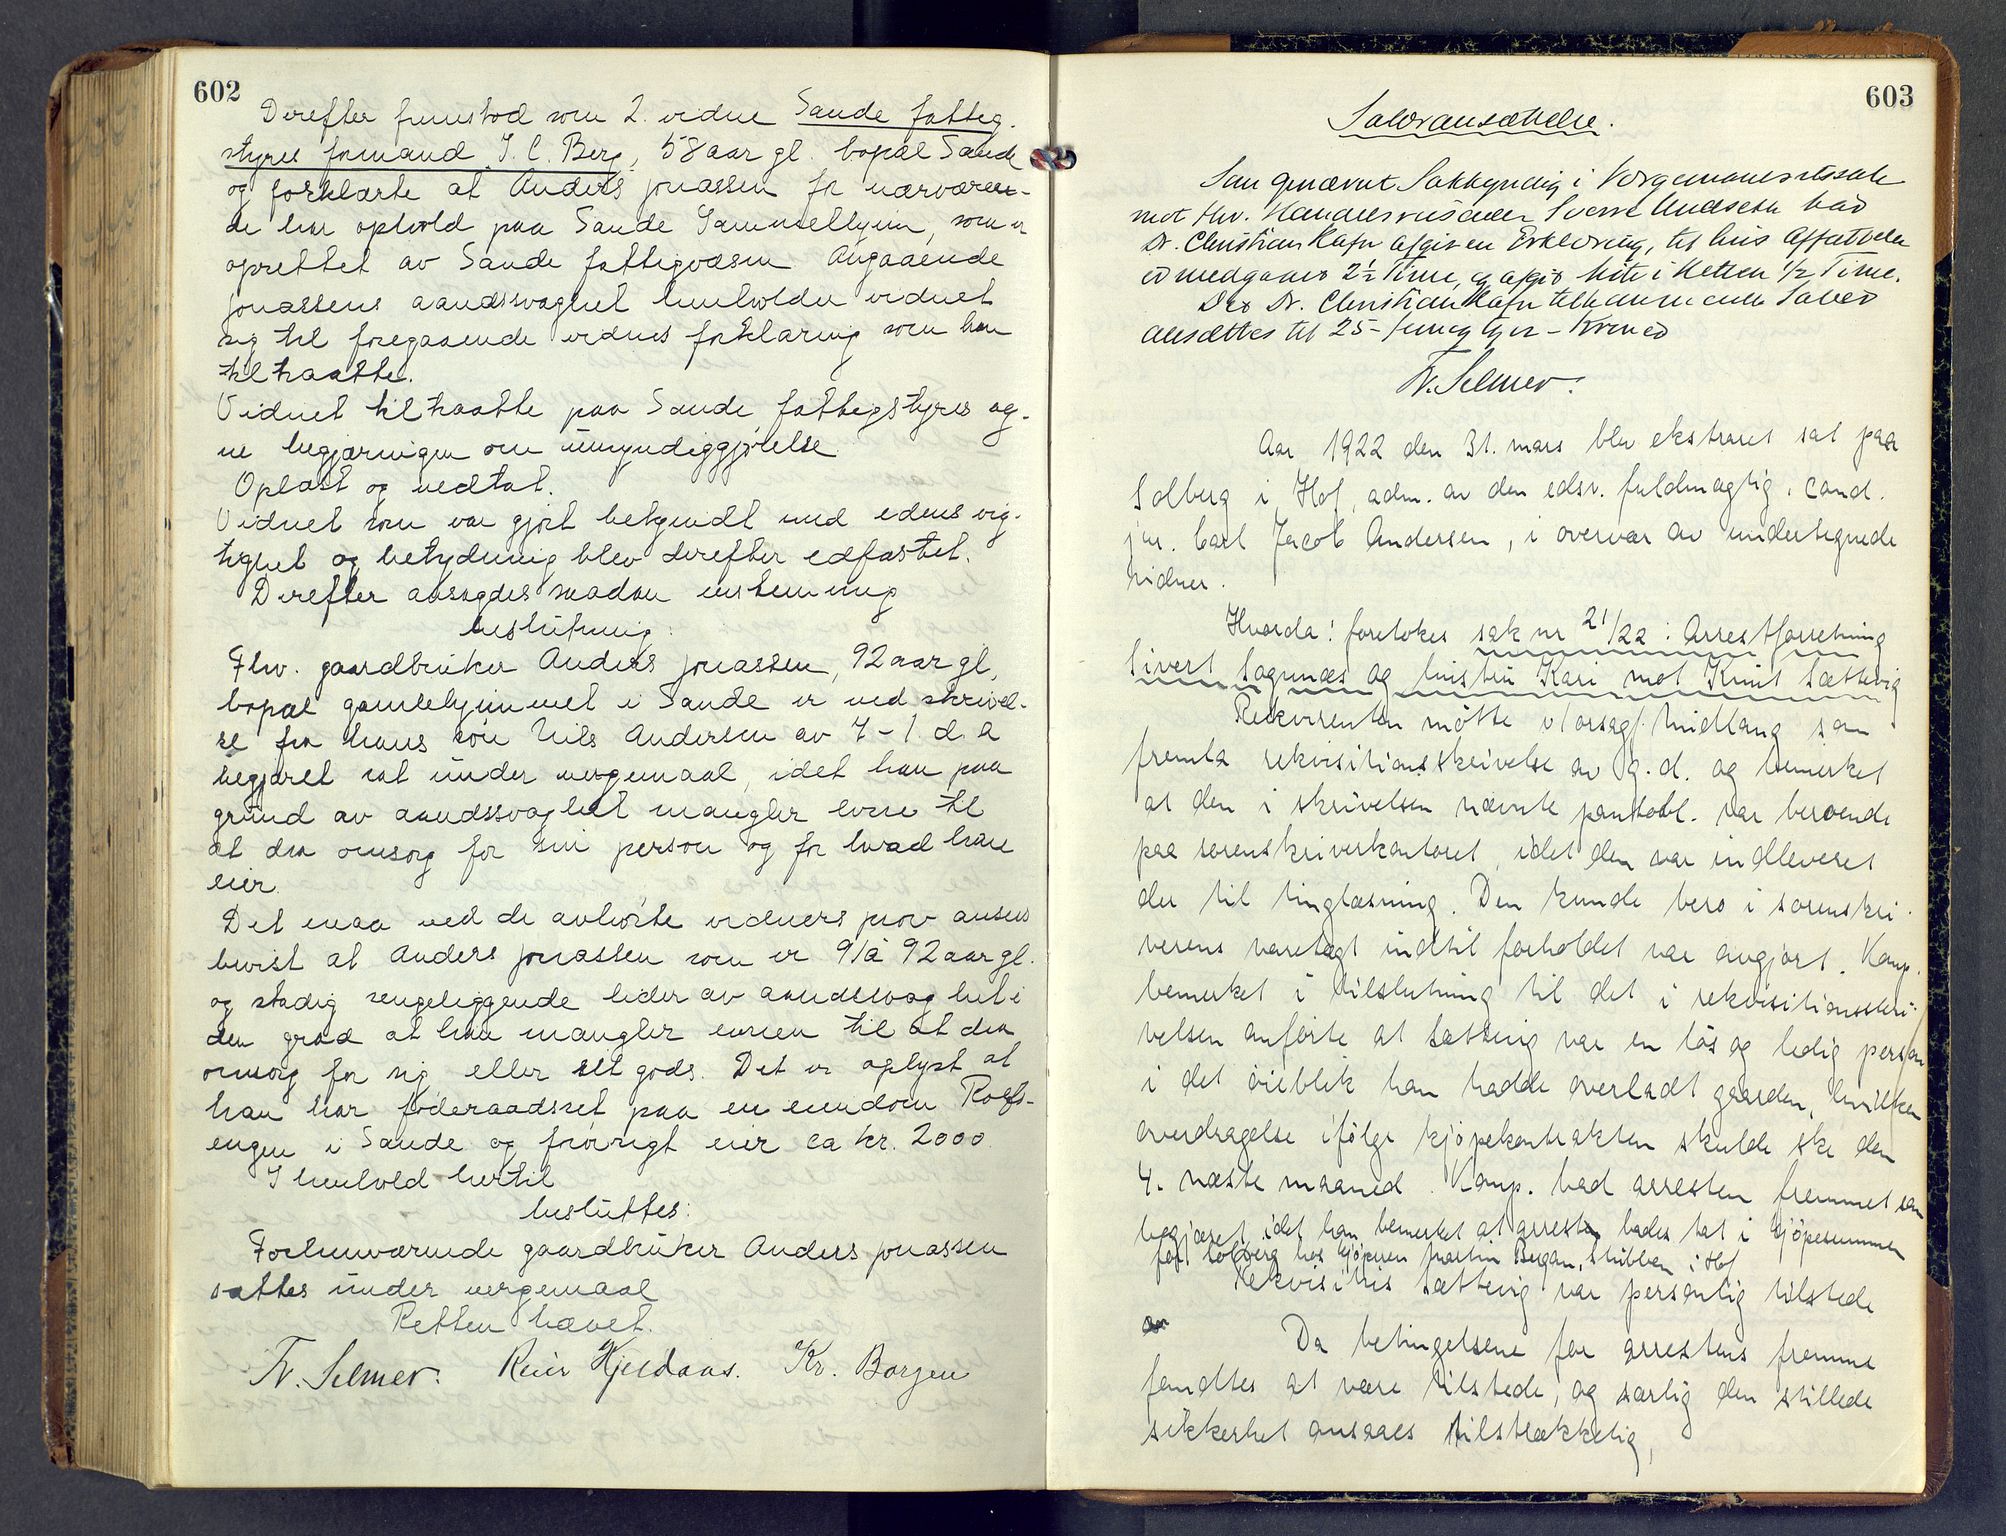 602
Derefter fremstod som 2. vidne Sande fatteg-
styres formand J. C. Berg, 58 aar gl. bopæl Sande
og forklarte at Anders Jonassen for nærværen-
de har ophold paa Sande Gammelhjem, som er
oprettet av Sande fattegvæsen Angaaende
Jonassens aandssvaghet henholder vidnet
sig til foregaaende vidnes forklaring som han
tiltraatte.
Vidnet tiltraatte paa Sande fattegstyres veg-
ne begjæringen om umyndiggjørelse
Oplæst og vedtat.
Vidnet som var gjort bekjendt med edens vig-
tighet og betydning blev derefter edfæstet.
Derefter avsagdes saadan enstemmig
beslutning:
Fhv. gaardbruker Anders Jonassen, 92 aar gl,
bopæl gamlehjemmet i Sande er ved skrivel-
se fra hans søn Nils Andersen av 7-1. d. a
begjæret sat under vergemaal, idet han paa
grund av aandssvaghet mangler evne til
at dra omsorg for sin person og for hvad han
eier.
Det maa ved de avhørte vidners prov ansees
bevist at Anders Jonassen som er 91 à 92 aar gl.
og stadig sengeliggende lider av aandssvaghet i
den grad at han mangler evnen til at dra
omsorg for sig eller sit gods. Det er oplyst at
han har føderaadsret paa en eiendom Rolfs-
engen i Sande og forøvrigt eier ca kr. 2000
I henhold hertil
besluttes:
Forhenværende gaardbruker Anders Jonassen
sættes under vergemaal
Retten hævet.
Fr. Selmer. Reier Hjeldaas. Kr. Borgen
603
Salæransættelse.
Som opnævnt Sakkyndig i Vergemaalssak
mot fhv. Handelsreisende Sverre Andsen har
Dr. Christian Rafn afgiven Erklæring, til hvis Affattelse
er medgaaet 2½ Time, og afgit Møte i Retten ½ Time.
Det Dr. Christian Rafn tilkommende Salær
ansættes til 25 - fem og tyve - Kroner
Fr. Selmer.
Aar 1922 den 31. mars blev ekstraret sat paa
Solberg i Hof, adm. av den edsv. fuldmægtig, cand.
jur. Carl Jacob Andersen, i overvær av undertegnede
vidner.
Hvorda: foretokes sak nr 21/22: Arrestforretning
Sivert Sagunæs og hustru Kari mot Knut Sættevig
Rekvirenten møtte v/orsagf. Midttang som
fremla rekvisitionsskrivelse av g. d. og bemerket
at den i skrivelsen nævnte pantobl. var beroende
paa sorenskriverkontoret, idet den var indleveret
der til tinglæsning. Den kunde bero i sorenskri-
verens varetægt indtil forholdet var avgjort. Komp.
bemerket i tilslutning til det i rekvisitionsskri-
velsen anførte at Sættevig var en løs og ledig person
i det øieblik han hadde overladt gaarden, hvilken
overdragelse ifølge kjøpekontrakten skulde ske den
4. næste maaned. Komp. bad arresten fremmet som
begjæret, idet han bemerket at arresten bades tat i kjøpesummen
for Solberg hos kjøperen Martin Bergan, Stubben i Hof
Rekvisitus Sættevig var personlig tilstede
Da betingelsene for arrestens fremme
fandtes at være tilstede, og særlig den stillede
sikkerhet ansaaes tilstrækkelig,